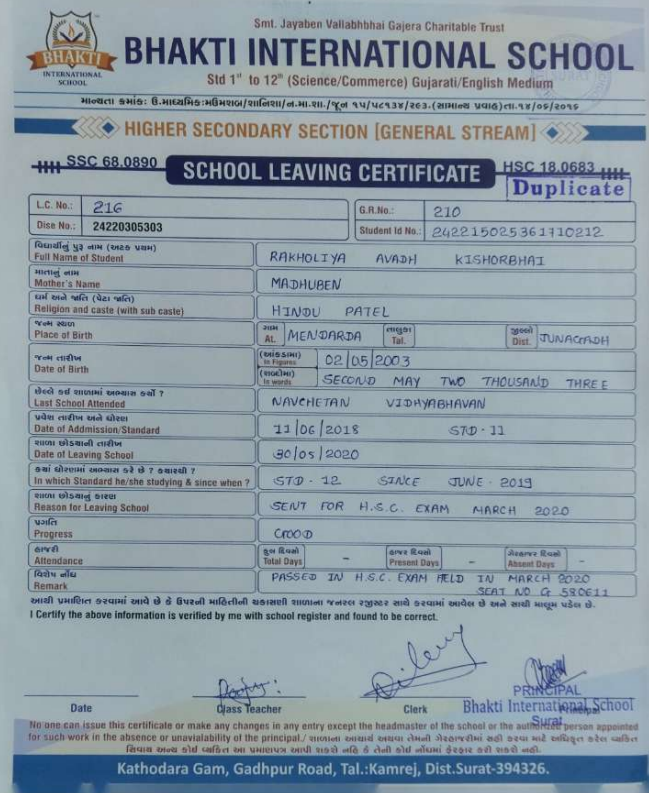 Smt. Jayaben Vallabhbhai Gajera Charitable Trust
BHAKTI
INTERNATIONAL
SCHOOL
BHAKTI INTERNATIONAL SCHOOL
Std 1st to 12th (Science/Commerce) Gujarati/English Medium
માન્યતા ક્રમાંક: ઉ.માધ્યમિક:મઉમશબ/શાનિશા/ન.મા.શા./જૂન ૧૫/૫૮૧૩૪/૨૯૩.(સામાન્ય પ્રવાહ)તા.૧૪/૦૬/૨૦૧૬
HIGHER SECONDARY SECTION [GENERAL STREAM]
SSC 68.0890 SCHOOL LEAVING CERTIFICATE HSC 18.0683
Duplicate
L.C. No.: 216 G.R.No.: 210
Dise No.: 24220305303 Student Id No.: 242215025361710212
વિદ્યાર્થીનું પુરૂ નામ (અટક પ્રથમ)
Full Name of Student RAKHOLIYA AVADH KISHORBHAI
માતાનું નામ
Mother's Name MADHUBEN
ધર્મ અને જાતિ (પેટા જાતિ)
Religion and caste (with sub caste) HINDU PATEL
જન્મ સ્થળ ગામ તાલુકા જીલ્લો
Place of Birth At. MENDARDA Tal. Dist. JUNAGADH
જન્મ તારીખ (આંકડામાં)
Date of Birth In Figures 02/05/2003
(શબ્દોમાં)
In words SECOND MAY TWO THOUSAND THREE
છેલ્લે કઈ શાળામાં અભ્યાસ કર્યો ?
Last School Attended NAVCHETAN VIDHYABHAVAN
પ્રવેશ તારીખ અને ધોરણ
Date of Addmission/Standard 11/06/2018 STD-11
શાળા છોડયાની તારીખ
Date of Leaving School 30/05/2020
કયાં ધોરણમાં અભ્યાસ કરે છે ? કયારથી ?
In which Standard he/she studying & since when ? STD-12 SINCE JUNE-2019
શાળા છોડયાનું કારણ
Reason for Leaving School SENT FOR H.S.C. EXAM MARCH 2020
પ્રગતિ
Progress GOOD
હાજરી કુલ દિવસો હાજર દિવસો ગેરહાજર દિવસો
Attendance Total Days - Present Days - Absent Days -
વિશેષ નોંધ
Remark PASSED IN H.S.C. EXAM HELD IN MARCH 2020
SEAT NO G 580611
આથી પ્રમાણિત કરવામાં આવે છે કે ઉપરની માહિતીની ચકાસણી શાળાના જનરલ રજીસ્ટર સાથે કરવામાં આવેલ છે અને સાચી માલુમ પડેલ છે.
I Certify the above information is verified by me with school register and found to be correct.
PRINCIPAL
Date Class Teacher Clerk Principal
Bhakti International School
Surat
No one can issue this certificate or make any changes in any entry except the headmaster of the school or the authorized person appointed
for such work in the absence or unavialability of the principal./ શાળાના આચાર્ય અથવા તેમની ગેરહાજરીમાં સહી કરવા માટે અધિકૃત કરેલ વ્યકિત
સિવાય અન્ય કોઈ વ્યકિત આ પ્રમાણપત્ર આપી શકશે નહિ કે તેની કોઈ નોંધમાં ફેરફાર કરી શકશે નહી.
Kathodara Gam, Gadhpur Road, Tal.:Kamrej, Dist.Surat-394326.